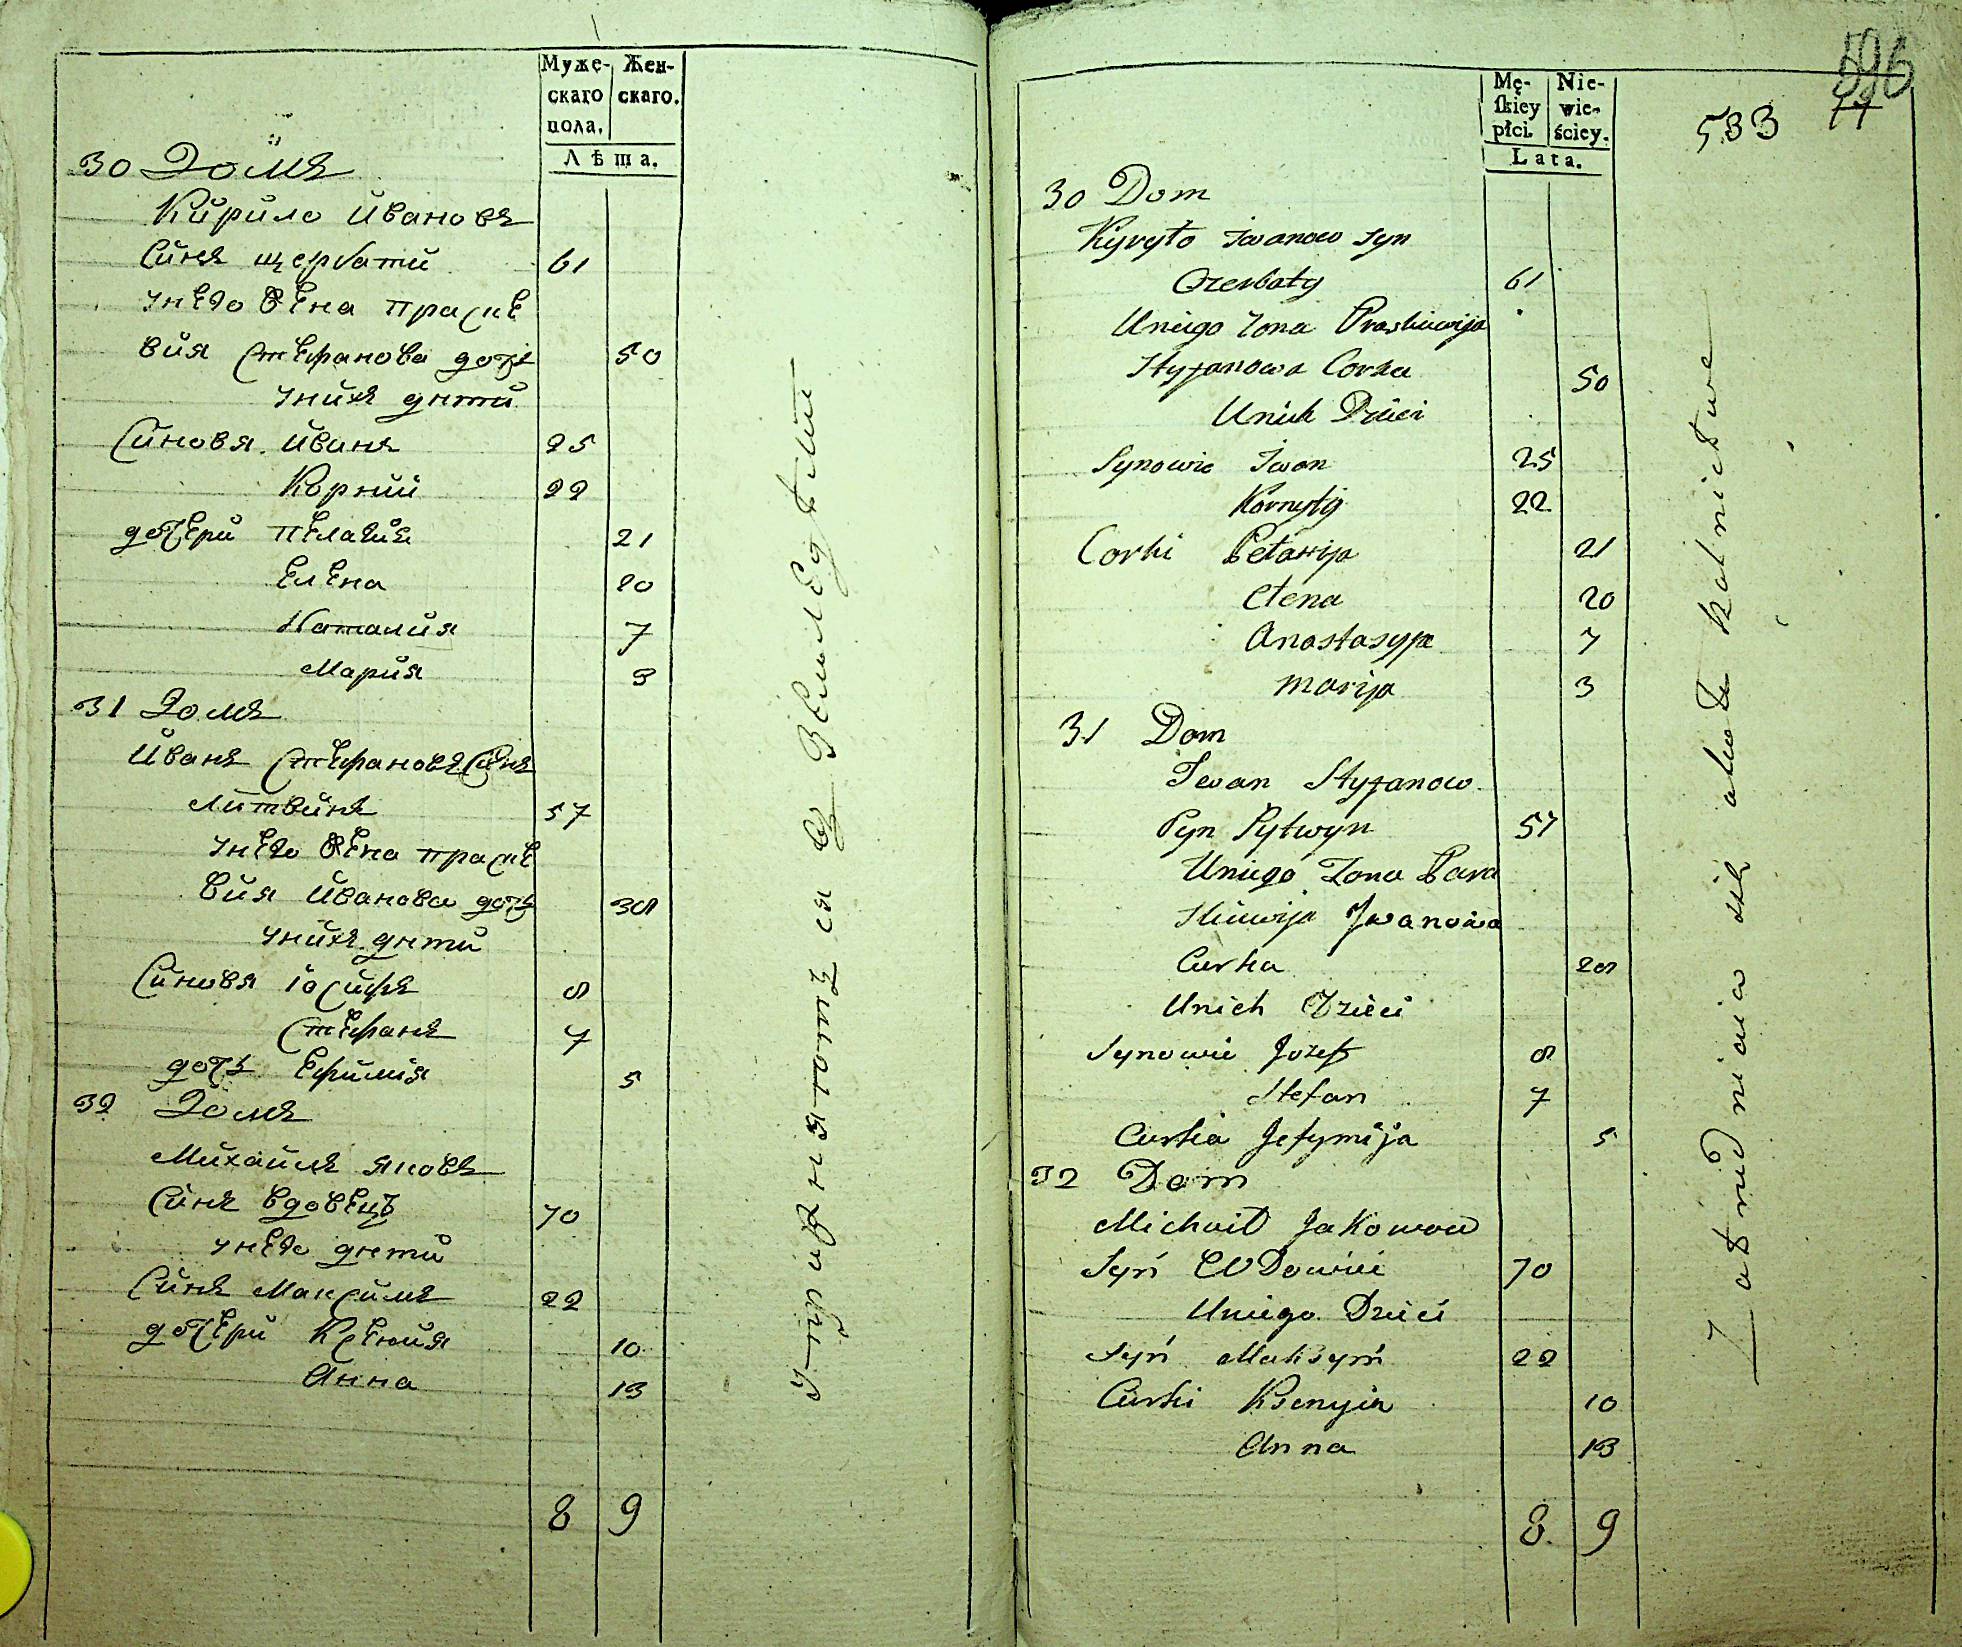 Муже-
скаго
пола.
Жен-
скаго.
Лѣта.
30 Домъ
Кирило Ивановъ
Синъ щербати 61
Унего жена Праске
вия Стефанова дочь 50
Унихъ дѣти
Синовя Иванъ 25
Корний 22
дочери Пелагия 21
Елена 20
Наталия 7
Мария 3
31 Домъ
Иванъ Стефановъ Синъ
Литвинъ 57
Унего жена Праске
вия Иванова дочь 38
Унихъ дѣти
Синовя Іосифъ 8
Стефанъ 7
дочь Ефимия 5
32 Домъ
Михаилъ Яковъ
Синъ вдовець 70
Унего дѣти
Синъ Максимъ 22
дочери Ксения 10
Анна 13
8 9
Упражняютъ ся въ
Mę-
skiey
płci.
Nie-
wie-
ściey.
Lata.
533
30 Dom
Kyryło Iwanow syn
Czerbaty 61
Uniego Zona Praskiewija
Styfanowa Corka 50
Unich Dzieci
Synowie Iwan 25
Kornyły 22
Corki Pełahija 21
Ełena 20
Anastasyja 7
Marija 3
31 Dom
Iwan Styfanow
Syn Łytwyn 57
Uniego Zona Para
skiewija Iwanowa
Curka 28
Unich Dzieci
Synowie Jozef 8
Stefan 7
Curka Jefymija 5
32 Dom
Michaił Jakowow
Syn Wdowiec 70
Uniego Dzieci
Syn Maksym 22
Curki Ksenyia 10
Anna 13
8. 9
Zatrudniaia sie